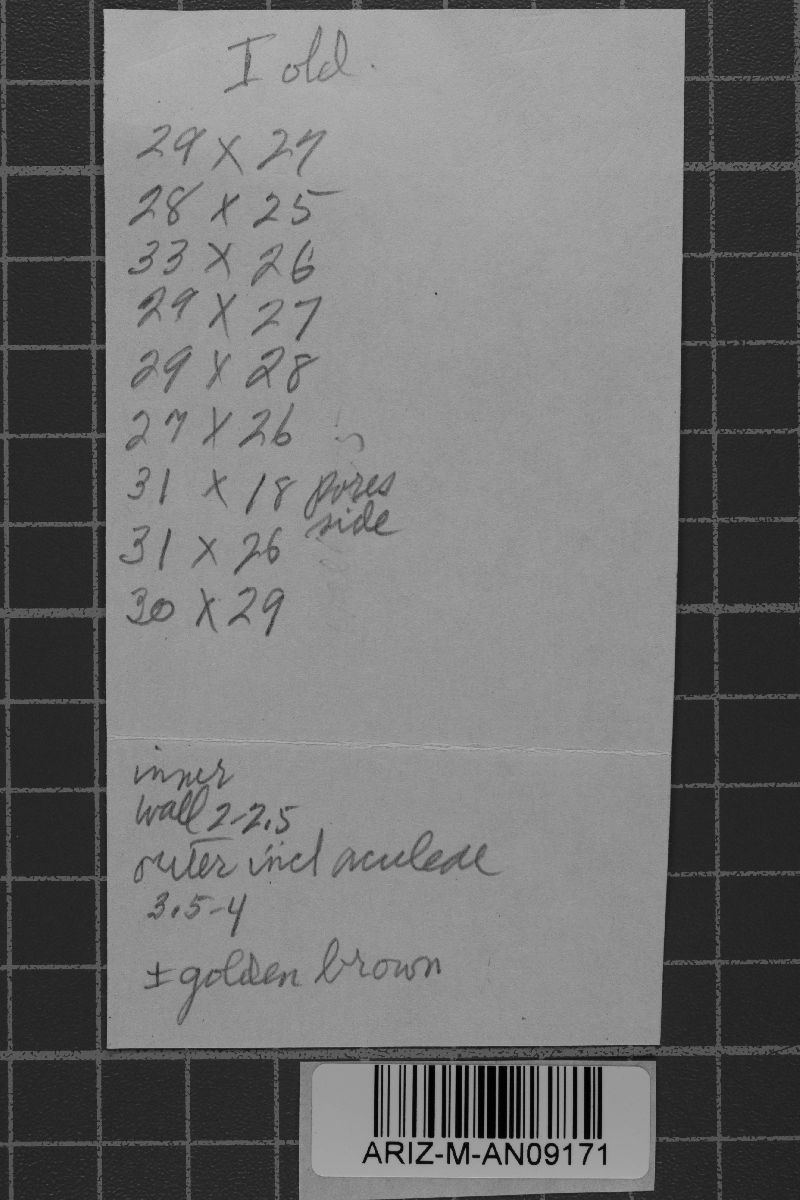 I old.
29 X 27
28 X 25
33 X 26
29 X 27
29 X 28
27 X 26
31 X 18 pores
side
31 X 26
30 X 29
inner
wall 2-2.5
outer incl aculeae
3.5-4
± golden brown
ARIZ-M-AN09171